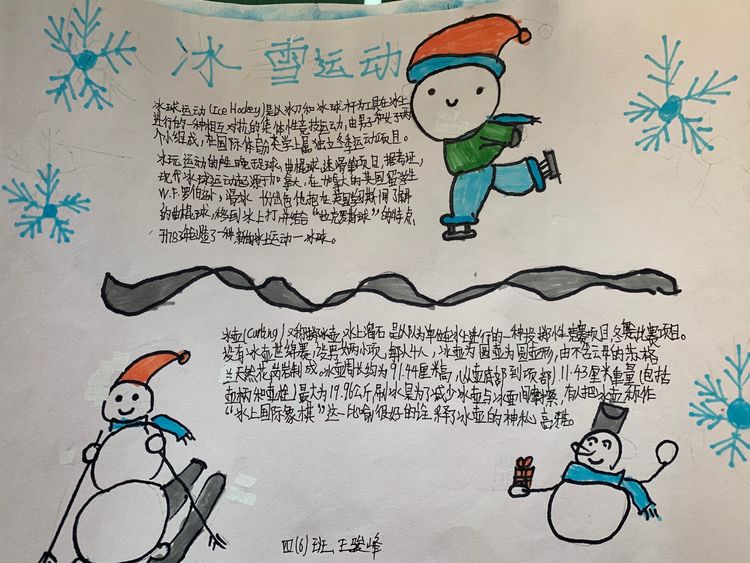 冰雪运动
冰球运动(Ice Hockey)是以冰刀和冰球杆为工具在冰上
进行的一种相互对抗的集体性竞技运动,由男子和女子两
个小组成,在国际体育分类学上属独立冬季运动项目。
冰玩运动的 球、曲棍球、速滑等项目,据考证,
现代冰球运动起源于加拿大,在加拿大的英国留学生
W.F.罗伯逊,滑冰 出色他把在英国 期间了解
的曲棍球,移到冰上打,并结合“拉克罗斯球”的特点
于1783年创造了一种新的冰上运动一冰球。
冰壶(Curling)又称掷冰壶,冰上溜石是以队为单位在冰上进行的一种投掷性竞赛项目,冬奥比赛项目。
设有冰壶世锦赛,设男女两小项,每队4人,冰壶为圆壶为圆壶形,由不含云母的苏格
兰天然花岗岩制成,冰壶周长约为91.44厘米高,(从壶底部到顶部)11.43厘米重量(包括
壶柄和壶栓)最大为19.96公斤,刷冰是为了减少冰壶与冰壶间摩擦,有人把冰壶称作
“冰上国际象棋”这一比喻很好的诠释了冰壶的神秘,高雅。
四(6)班 王骏峰